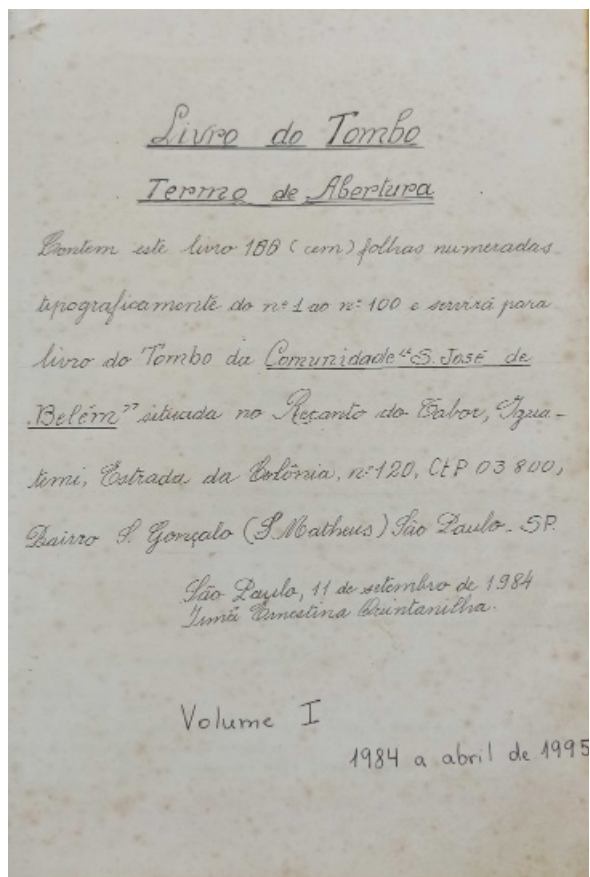 Livro do Tombo
Termo de Abertura
Contem este livro 100 (cem) folhas numeradas
tipograficamente do nº 1 ao nº 100 e servirá para
livro do Tombo da Comunidade "S. José de
Belém" situada no Recanto do Tabor, Igua-
temi, Estrada da Colônia, nº 120, CEP 03 800,
Bairro S. Gonçalo (S. Matheus) São Paulo - SP.
São Paulo, 11 de setembro de 1984
Irmã Ernestina Quintanilha.
Volume I
1984 a abril de 1995